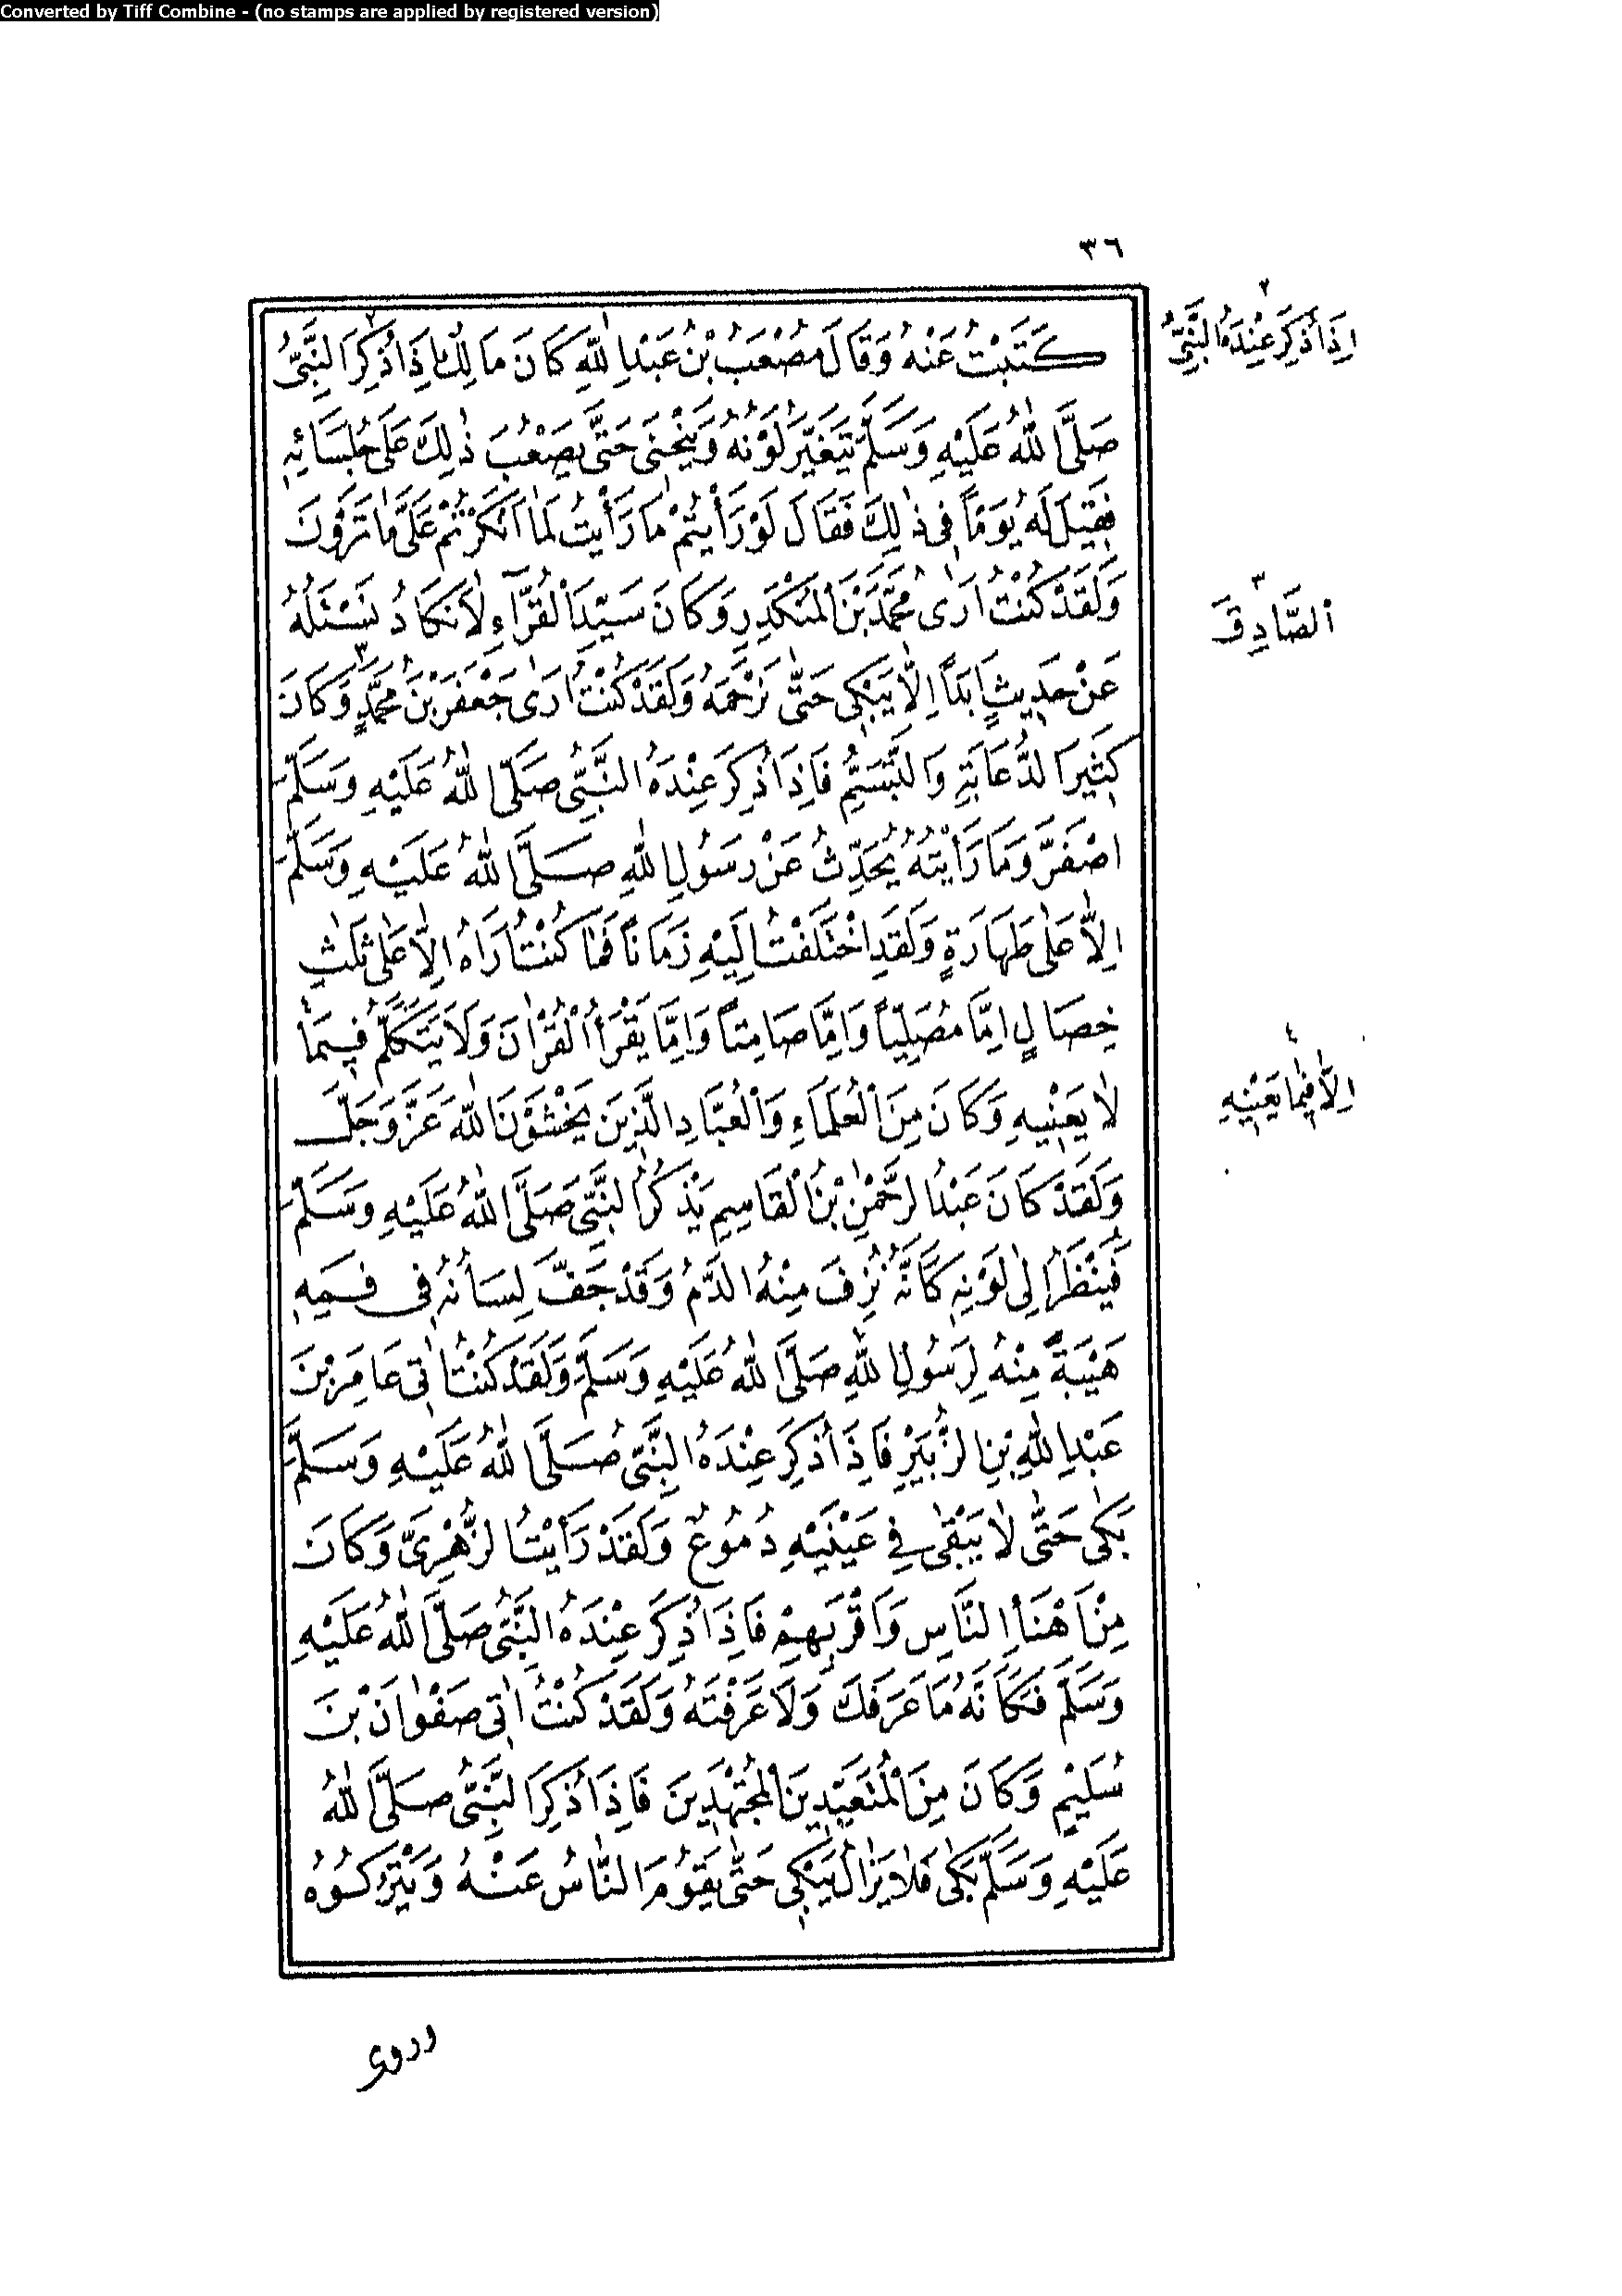 Converted by Tiff Combine - (no stamps are applied by registered version)
٣٦
كَتَبْتُ عَنْهُ وَقَالَ مُصْعَبُ بْنُ عَبْدِ اللّٰهِ كَانَ مَالِكٌ اِذَا ذُكِرَ النَّبِيُّ
صَلَّى اللّٰهُ عَلَيْهِ وَسَلَّمَ يَتَغَيَّرُ لَوْنُهُ وَيَنْحَنِي حَتّٰى يَصْعُبَ ذٰلِكَ عَلٰى جُلَسَائِهِ
فَقِيلَ لَهُ يَوْمًا فِي ذٰلِكَ فَقَالَ لَوْ رَأَيْتُمْ مَا رَأَيْتُ لَمَا اَنْكَرْتُمْ عَلَيَّ مَا تَرَوْنَ
وَلَقَدْ كُنْتُ اَرٰى مُحَمَّدَ بْنَ الْمُنْكَدِرِ وَكَانَ سَيِّدَ الْقُرَّآءِ لَا نَكَادُ نَسْئَلُهُ
عَنْ حَدِيثٍ اَبَدًا اِلَّا يَبْكِي حَتّٰى نَرْحَمَهُ وَلَقَدْ كُنْتُ اَرٰى جَعْفَرَ بْنَ مُحَمَّدٍ ٣ وَكَانَ
كَثِيرَ الدُّعَابَةِ وَالتَّبَسُّمِ فَاِذَا ذُكِرَ عِنْدَهُ النَّبِيُّ صَلَّى اللّٰهُ عَلَيْهِ وَسَلَّمَ
اصْفَرَّ وَمَا رَاَيْتُهُ يُحَدِّثُ عَنْ رَسُولِ اللّٰهِ صَلَّى اللّٰهُ عَلَيْهِ وَسَلَّمَ
اِلَّا عَلٰى طَهَارَةٍ وَلَقَدِ اخْتَلَفْتُ اِلَيْهِ زَمَانًا فَمَا كُنْتُ اَرَاهُ اِلَّا عَلٰى ثَلٰثِ
خِصَالٍ اِمَّا مُصَلِّيًا وَاِمَّا صَامِتًا وَاِمَّا يَقْرَأُ الْقُرْاٰنَ وَلَا يَتَكَلَّمُ فِيمَا
لَا يَعْنِيهِ وَكَانَ مِنَ الْعُلَمَاءِ وَالْعُبَّادِ الَّذِينَ يَخْشَوْنَ اللّٰهَ عَزَّ وَجَلَّ
وَلَقَدْ كَانَ عَبْدُ الرَّحْمٰنِ بْنُ الْقَاسِمِ يَذْكُرُ النَّبِيَّ صَلَّى اللّٰهُ عَلَيْهِ وَسَلَّمَ
فَيُنْظَرُ اِلٰى لَوْنِهِ كَاَنَّهُ نُزِفَ مِنْهُ الدَّمُ وَقَدْ جَفَّ لِسَانُهُ فِي فَمِهِ
هَيْبَةً مِنْهُ لِرَسُولِ اللّٰهِ صَلَّى اللّٰهُ عَلَيْهِ وَسَلَّمَ وَلَقَدْ كُنْتُ اٰتِي عَامِرَ بْنَ
عَبْدِ اللّٰهِ بْنِ الزُّبَيْرِ فَاِذَا ذُكِرَ عِنْدَهُ النَّبِيُّ صَلَّى اللّٰهُ عَلَيْهِ وَسَلَّمَ
بَكٰى حَتّٰى لَا يَبْقٰى فِي عَيْنَيْهِ دُمُوعٌ وَلَقَدْ رَاَيْتُ الزُّهْرِيَّ وَكَانَ
مِنْ اَهْنَاِ النَّاسِ وَاَقْرَبِهِمْ فَاِذَا ذُكِرَ عِنْدَهُ النَّبِيُّ صَلَّى اللّٰهُ عَلَيْهِ
وَسَلَّمَ فَكَاَنَّهُ مَا عَرَفَكَ وَلَا عَرَفْتَهُ وَلَقَدْ كُنْتُ اٰتِي صَفْوَانَ بْنَ
سُلَيْمٍ وَكَانَ مِنَ الْمُتَعَبِّدِينَ الْمُجْتَهِدِينَ فَاِذَا ذُكِرَ النَّبِيُّ صَلَّى اللّٰهُ
عَلَيْهِ وَسَلَّمَ بَكٰى فَلَا يَزَالُ يَبْكِي حَتّٰى يَقُومَ النَّاسُ عَنْهُ وَيَتْرُكُوهُ
٢
اِذَا ذُكِرَ عِنْدَهُ النَّبِيُّ
٣
الصَّادِقَ
٤
اِلَّا فِيمَا يَعْنِيهِ
وروى